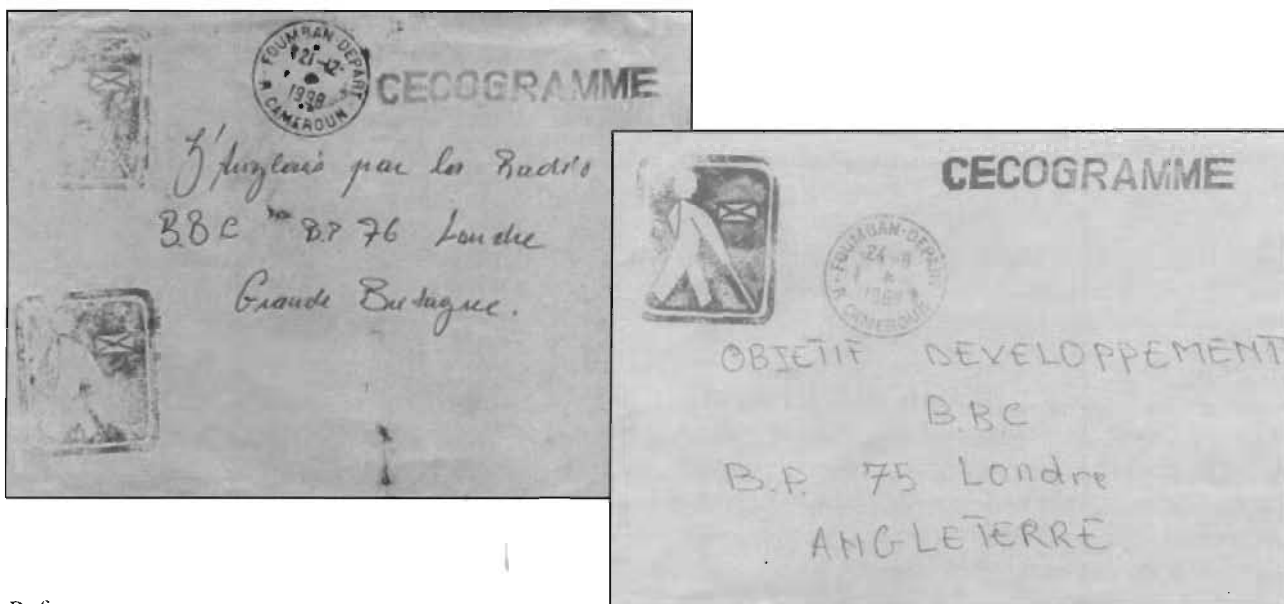 FOUMBAN-DEPART
21-12
1998
CAMEROUN
CECOGRAMME
L'Anglais par les Radio
B.B.C B.P 76 Londre
Grande Bretagne.
CECOGRAMME
FOUMBAN-DEPART
CAMEROUN
OBJETIF DEVELOPPEMENT
B.B.C
B.P. 75 Londre
ANGLETERRE